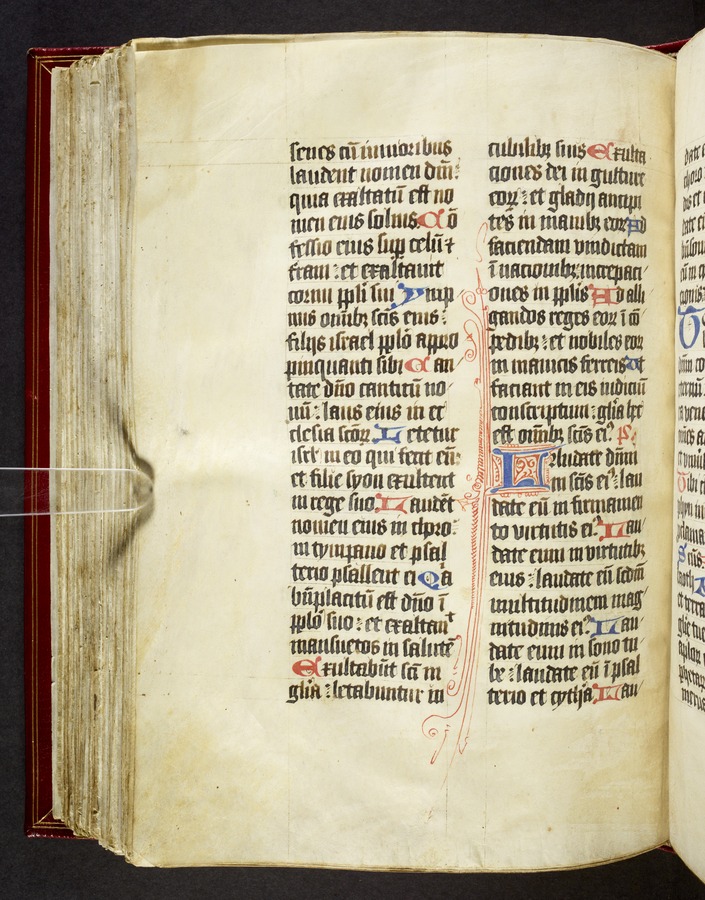 senes cū iunioribus
laudent nomen dnī:
quia exaltatū est no
men eius solius. Cō
fessio eius sup celū ⁊
terram : et exaltauit
cornu ppli sui Ymp
nus omībꝫ scīs eius :
filijs israel pplo appro
pinquanti sibi Can
tate dn̄o canticū no
uū : laus eius in ec
clesia scōꝝ. Letetur
isrl in eo qui fecit eū:
et filie syon exultent
in rege suo. Laudēt
nomen eius in choro :
in tympano et psal
terio psallent ei Quia
bn̄placitū est dn̄o ī
pplo suo : et exaltauit
mansuetos in salutē
Exultabūt scī in
glīa : letabuntur in
cubilibꝫ suis Exulta
ciones dei in gutture
eoꝝ : et gladij ancipi
tes in manibꝫ eoꝝ Ad
faciendam vindictam
ī nacionibꝫ : increpaci
ones in pplis Ad alli
gandos reges eoꝝ ī cō
pedibꝫ : et nobiles eoꝝ
in manicis ferreis Vt
faciant in eis iudiciū
conscriptum : glīa hec
est omībꝫ scīs eiꝰ. Pꝰ.
Laudate dnm
in scīs eiꝰ : lau
date eū in firmamen
to virtutis eiꝰ. Lau
date eum in virtutibꝫ
eius : laudate eū scdm
multitudinem mag
nitudinis eiꝰ. Lau
date eum in sono tu
be : laudate eū ī psal
terio et cythara. Lau